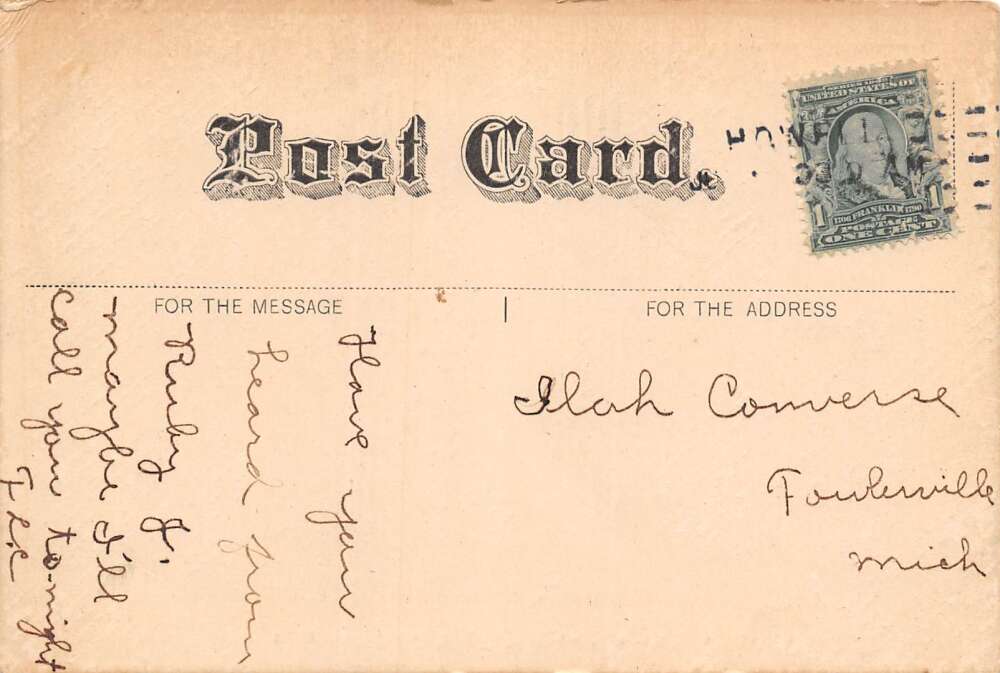 Post Card.
HOWELL
SERIES 1902
UNITED STATES OF
AMERICA
1706 FRANKLIN 1790
1 POSTAGE 1
ONE CENT
FOR THE MESSAGE
FOR THE ADDRESS
Have you
heard from
Ruby J.
maybe I'll
call you to-night
Ilah Converse
Fowlerville
Mich